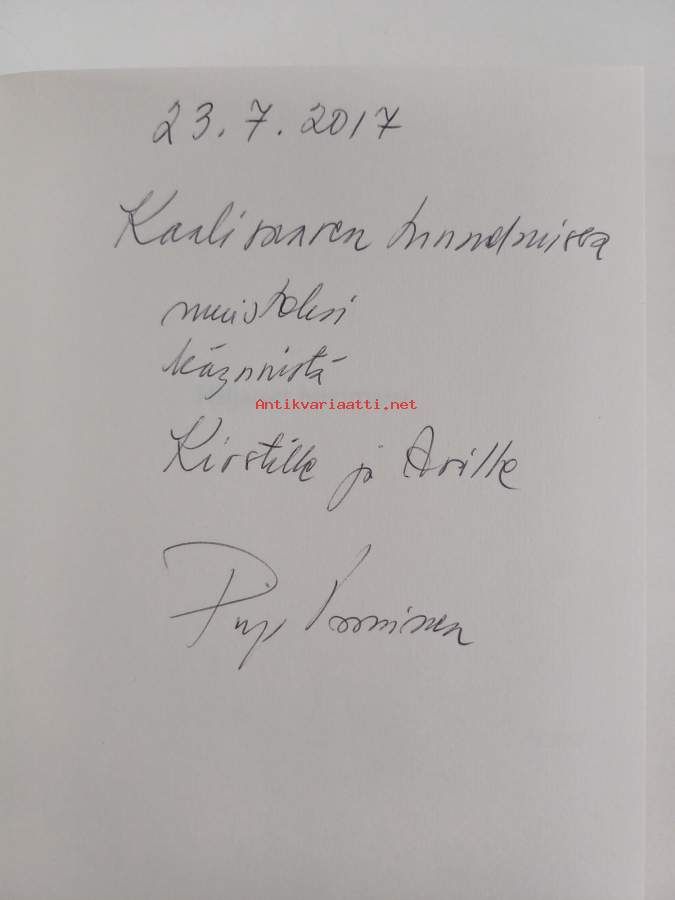 23.7.2017
Kaalisaaren tunnelmissa
muistoksi
käynnistä
Antikvariaatti.net
Kirstille ja Arille